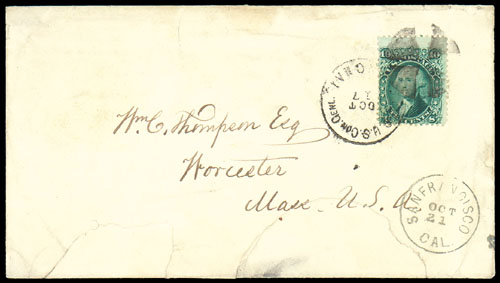 10 10
U.S. CON. GENL.
OCT
17
Wm. C. Thompson Esq
Worcester
Mass. U.S.A
SAN FRANCISCO
OCT
21
CAL.